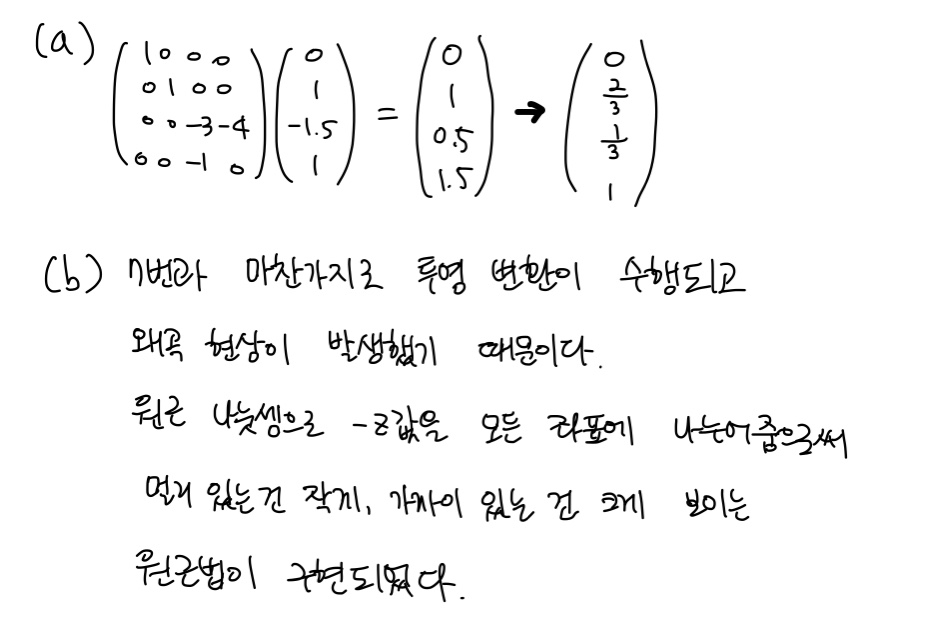 (a) (1 0 0 0 / 0 1 0 0 / 0 0 -3 -4 / 0 0 -1 0) (0 / 1 / -1.5 / 1) = (0 / 1 / 0.5 / 1.5) → (0 / 2/3 / 1/3 / 1)
(b) 7번과 마찬가지로 투영 변환이 수행되고
왜곡 현상이 발생했기 때문이다.
원근 나눗셈으로 -z값을 모든 좌표에 나누어줌으로써
멀리 있는건 작게, 가까이 있는 건 크게 보이는
원근법이 구현되었다.